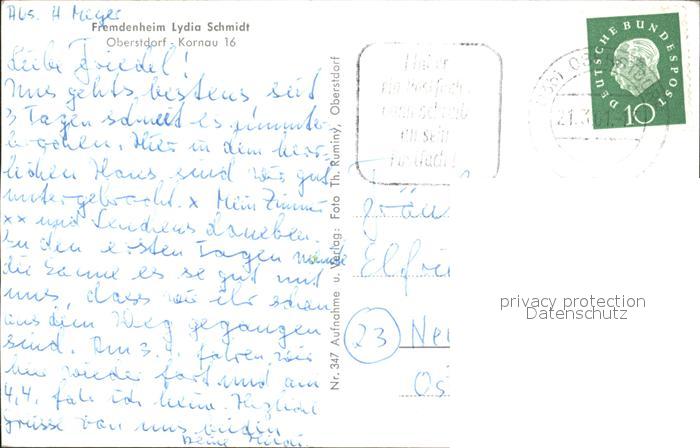 Abs. H Meyer
Fremdenheim Lydia Schmidt
Oberstdorf - Kornau 16
Liebe Friedel!
Uns gehts bestens seit
3 Tagen schneit es ununter
brochen. Hier in dem herr
lichen Haus sind wir gut
untergebracht. x Mein Zimmer
xx und daneben.
In den ersten Tagen meinte
die Sonne es so gut mit
uns, dass wir ihr schon
aus dem Weg gegangen
sind. Am 3.4. fahren wir
hier wieder fort und am
4.4. fah ich heim. Herzliche
Grüsse von uns beiden
Deine
Nr. 347 Aufnahme u. Verlag: Foto Th. Ruminy, Oberstdorf
an sein
DEUTSCHE BUNDESPOST
10
21.3.61
Fräu
Elfrie
23 Neu
Os
privacy protection
Datenschutz